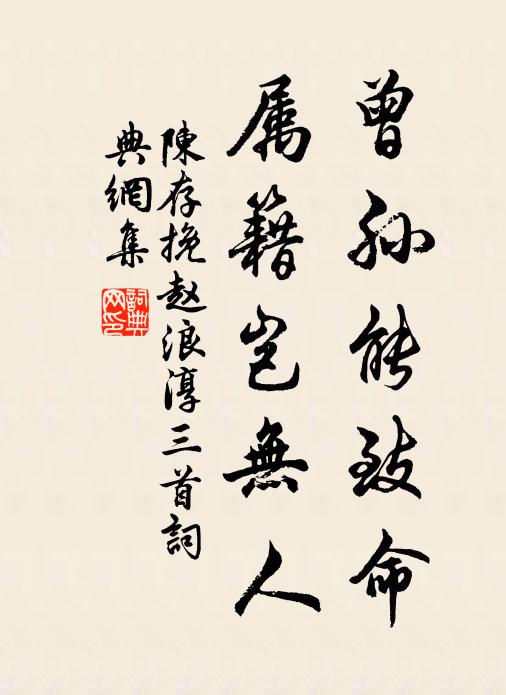 曾孙能致命
属籍岂無人
陳存挽赵浪淳三首詞
典網集
詞典网印